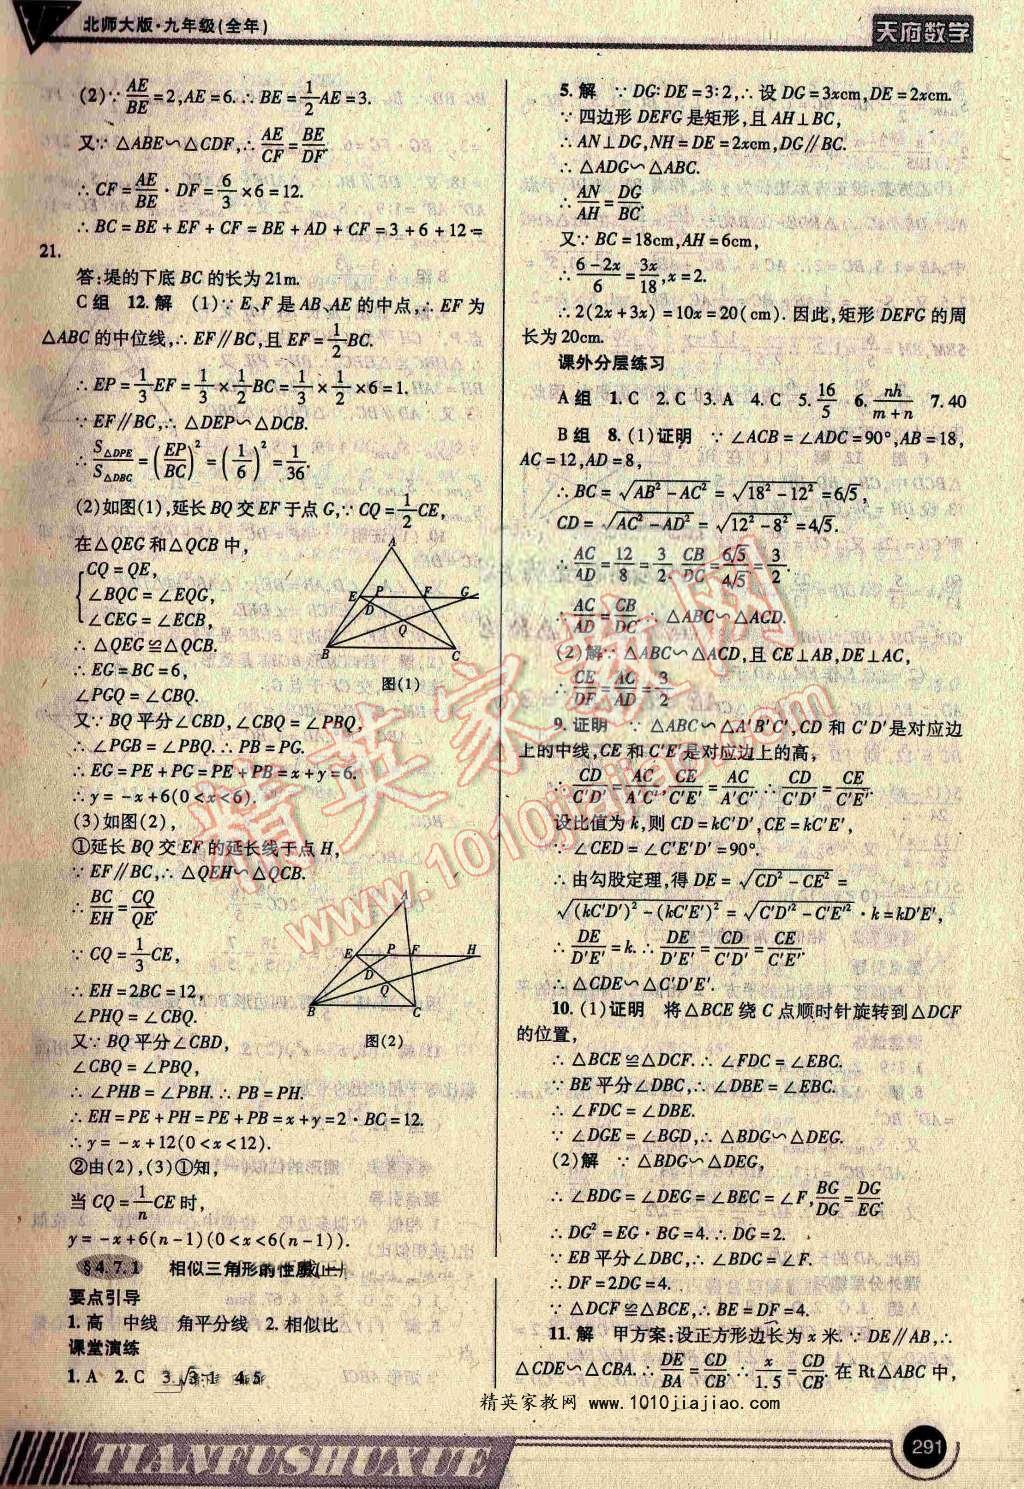 北师大版·九年级(全年)
天府数学
(2)∵AE/BE=2,AE=6.∴BE=1/2AE=3.
又∵△ABE∽△CDF,∴AE/CF=BE/DF.
∴CF=AE/BE·DF=6/3×6=12.
∴BC=BE+EF+CF=BE+AD+CF=3+6+12=
21.
答:堤的下底BC的长为21m.
C组 12.解 (1)∵E、F是AB、AE的中点,∴EF为
△ABC的中位线,∴EF∥BC,且EF=1/2BC.
∴EP=1/3EF=1/3×1/2BC=1/3×1/2×6=1.
∵EF∥BC,∴△DEP∽△DCB.
∴S△DPE/S△DBC=(EP/BC)²=(1/6)²=1/36.
(2)如图(1),延长BQ交EF于点G,∵CQ=1/2CE,
在△QEG和△QCB中,
CQ=QE,
∠BQC=∠EQG,
∠CEG=∠ECB,
∴△QEG≌△QCB.
∴EG=BC=6,
∠PGQ=∠CBQ.
A
E P F G
D
Q
B C
图(1)
又∵BQ平分∠CBD,∠CBQ=∠PBQ,
∴∠PGB=∠PBQ.∴PB=PG.
∴EG=PE+PG=PE+PB=x+y=6.
∴y=-x+6(0<x<6).
(3)如图(2),
①延长BQ交EF的延长线于点H,
∵EF∥BC,∴△QEH∽△QCB.
∴BC/EH=CQ/QE.
∵CQ=1/3CE,
∴EH=2BC=12,
∠PHQ=∠CBQ.
A
E P F H
D
Q
B C
图(2)
又∵BQ平分∠CBD,
∠CBQ=∠PBQ,
∴∠PHB=∠PBH.∴PB=PH.
∴EH=PE+PH=PE+PB=x+y=2·BC=12.
∴y=-x+12(0<x<12).
②由(2),(3)①知,
当CQ=1/n CE时,
y=-x+6(n-1)(0<x<6(n-1)).
§4.7.1 相似三角形的性质(一)
要点引导
1.高 中线 角平分线 2.相似比
课堂演练
1.A 2.C 3. √3:1 4.5
5.解 ∵DG∶DE=3∶2,∴设DG=3xcm,DE=2xcm.
∵四边形DEFG是矩形,且AH⊥BC,
∴AN⊥DG,NH=DE=2xcm,DG∥BC.
∴△ADG∽△ABC.
∴AN/AH=DG/BC.
又∵BC=18cm,AH=6cm,
∴(6-2x)/6=3x/18,x=2.
∴2(2x+3x)=10x=20(cm).因此,矩形DEFG的周
长为20cm.
课外分层练习
A组 1.C 2.C 3.A 4.C 5.16/5 6.nh/(m+n) 7.40
B组 8.(1)证明 ∵∠ACB=∠ADC=90°,AB=18,
AC=12,AD=8,
∴BC=√(AB²-AC²)=√(18²-12²)=6√5,
CD=√(AC²-AD²)=√(12²-8²)=4√5.
∴AC/AD=12/8=3/2.CB/DC=6√5/4√5=3/2.
∴AC/AD=CB/DC.∴△ABC∽△ACD.
(2)解∵△ABC∽△ACD,且CE⊥AB,DE⊥AC,
∴CE/DF=AC/AD=3/2
9.证明 ∵△ABC∽△A′B′C′,CD和C′D′是对应边
上的中线,CE和C′E′是对应边上的高,
∴CD/C′D′=AC/A′C′.CE/C′E′=AC/A′C′.∴CD/C′D′=CE/C′E′.
设比值为k,则CD=kC′D′,CE=kC′E′,
∵∠CED=∠C′E′D′=90°.
∴由勾股定理,得DE=√(CD²-CE²)=
√((kC′D′)²-(kC′E′)²)=√(C′D′²-C′E′²)·k=kD′E′,
∴DE/D′E′=k.∴DE/D′E′=CD/C′D′=CE/C′E′.
∴△CDE∽△C′D′E′.
10.(1)证明 将△BCE绕C点顺时针旋转到△DCF
的位置,
∴△BCE≌△DCF.∴∠FDC=∠EBC.
∵BE平分∠DBC,∴∠DBE=∠EBC.
∴∠FDC=∠DBE.
∵∠DGE=∠BGD,∴△BDG∽△DEG.
(2)解 ∵△BDG∽△DEG,
∴∠BDG=∠DEG=∠BEC=∠F,BG/DG=DG/EG.
∴DG²=EG·BG=4.∴DG=2.
∵EB平分∠DBC,∴∠BDG=∠F.
∴DF=2DG=4.
∵△DCF≌△BCE,∴BE=DF=4.
11.解 甲方案:设正方形边长为x米.∵DE∥AB,∴
△CDE∽△CBA.∴DE/BA=CD/CB.∴x/1.5=CD/CB.在Rt△ABC中,
精英家教网
www.1010jiajiao.com
精英家教网 www.1010jiajiao.com
TIANFUSHUXUE
291